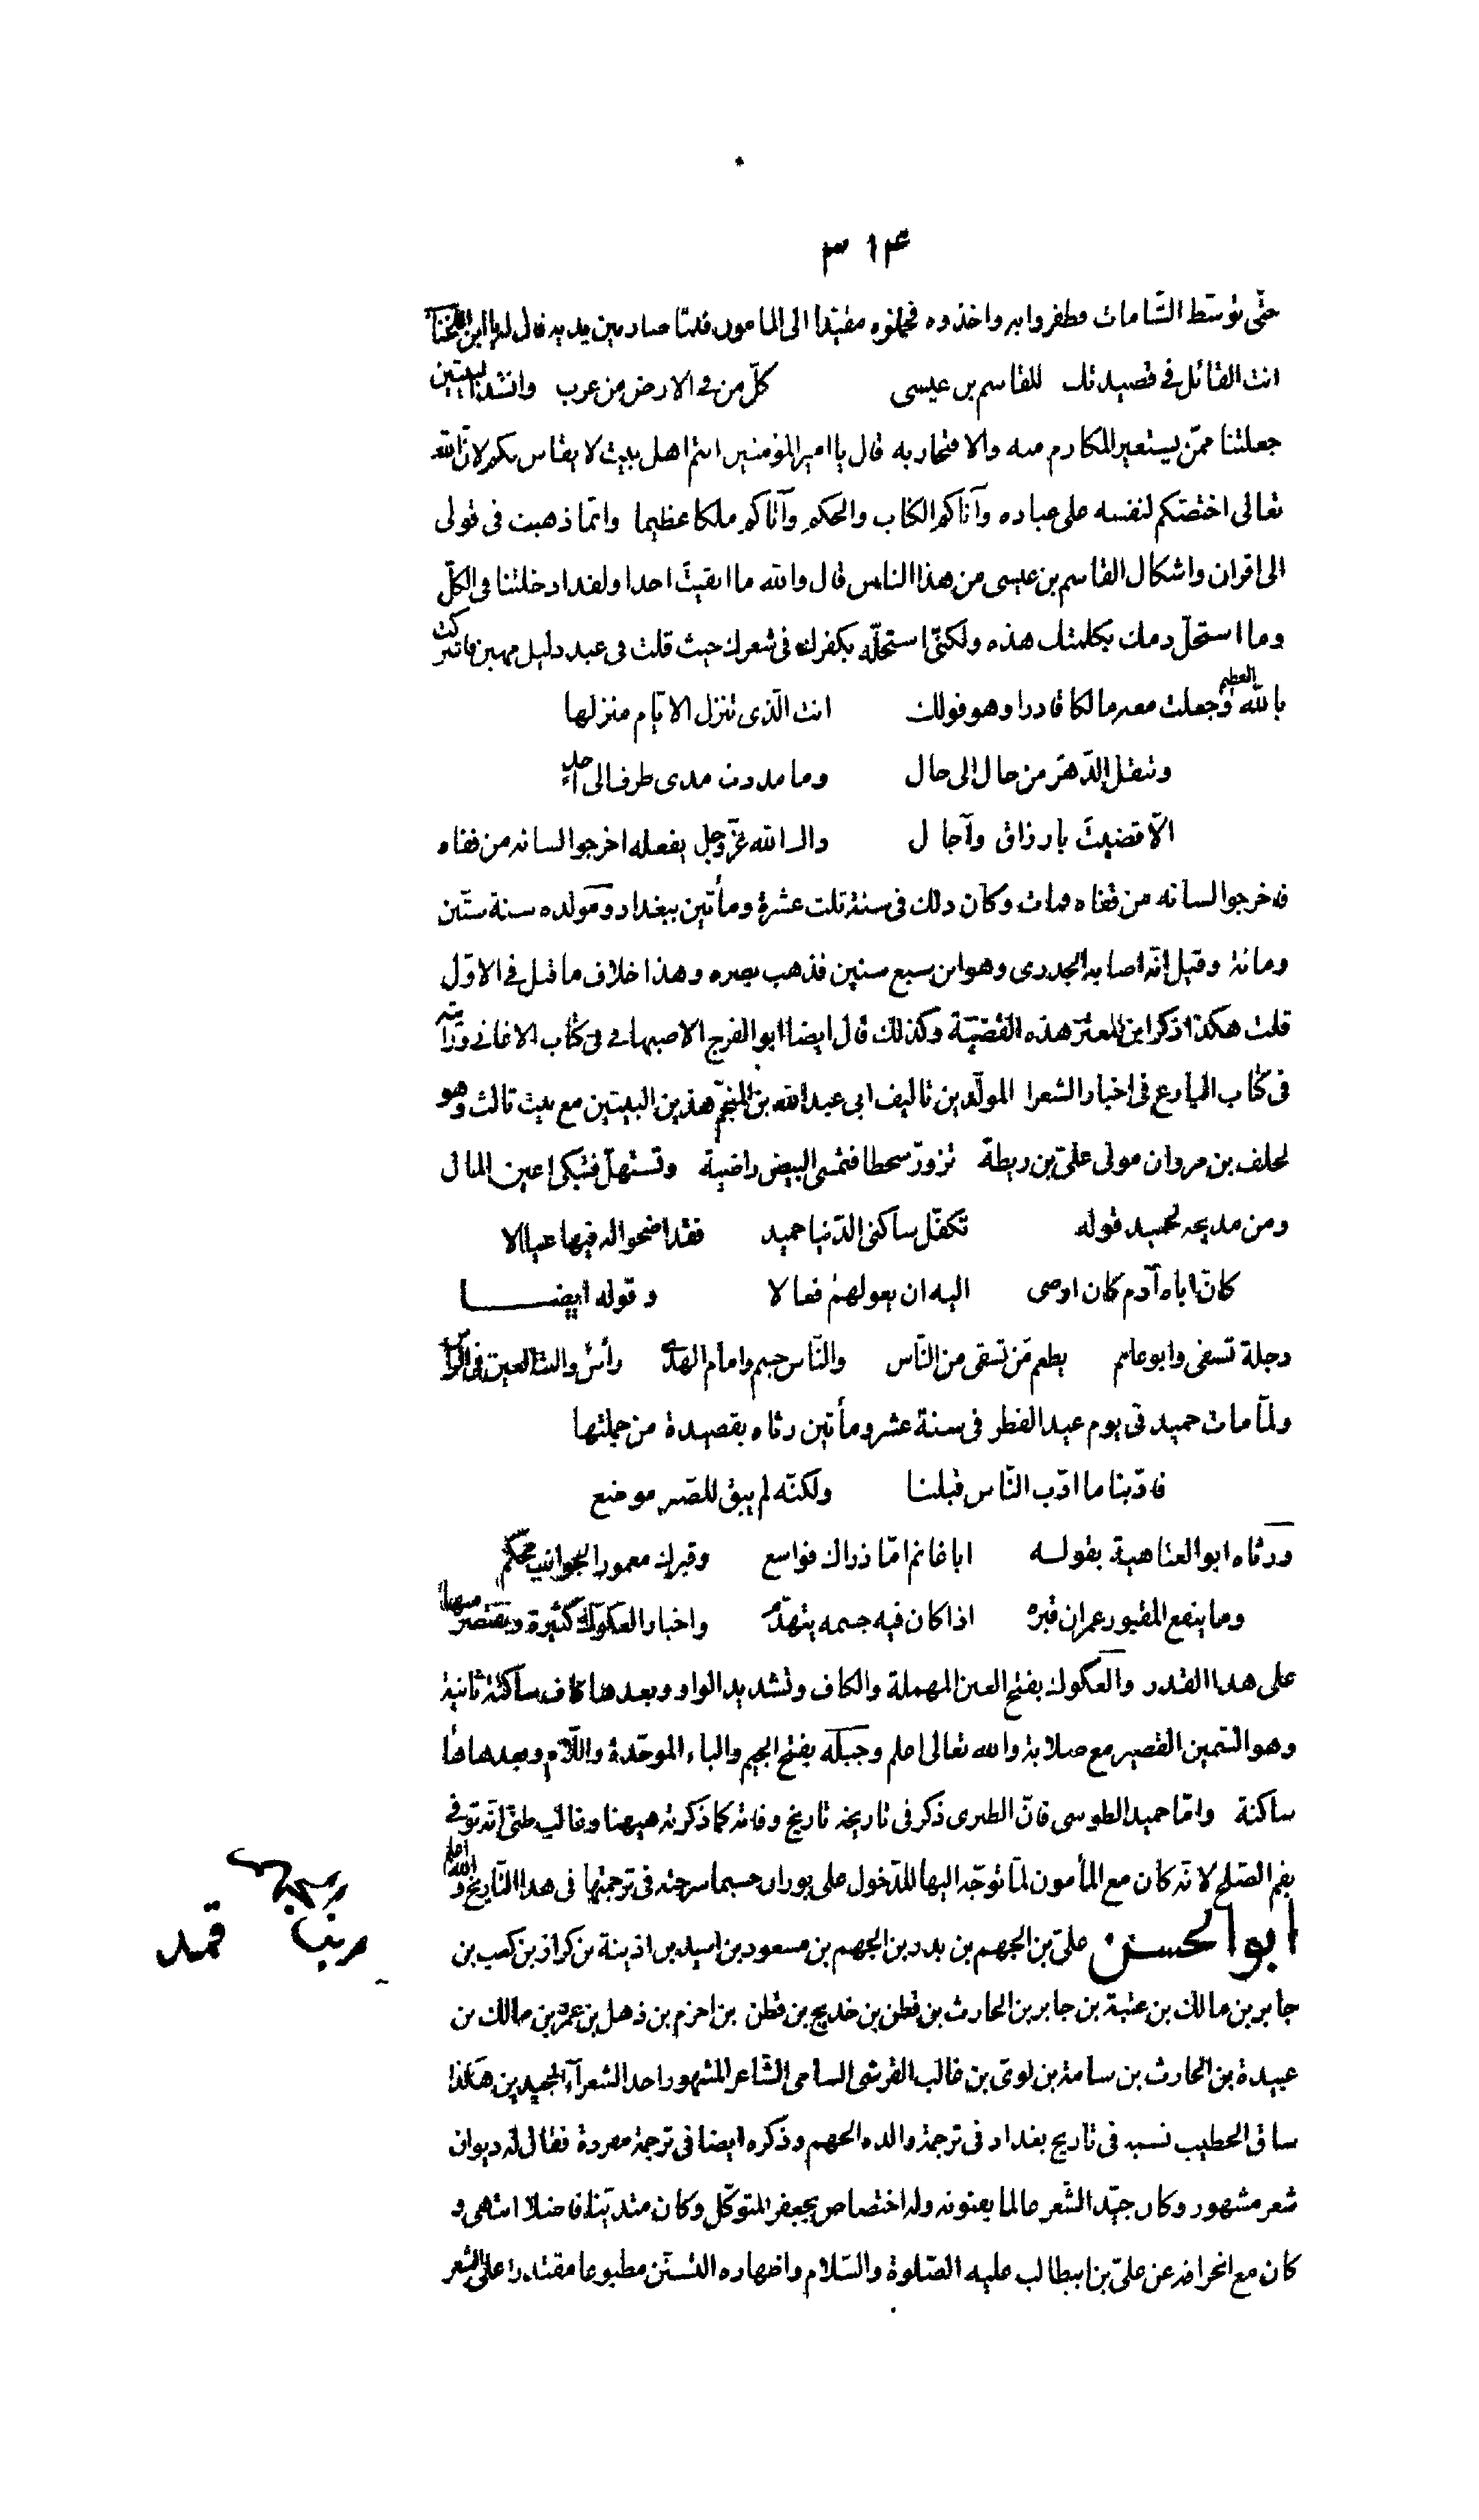 ٣١۴
حتّى توسّط الشّامات فظفروا به واخذوه فحملوه مقيّدا الى المامون فلمّا صار بين يديه قال له يا ابن اللخنا
انت القائل فى قصيدتك للقاسم بن عيسى كلّ من فى الارض من عرب وانشد البيتين
جعلتنا ممّن يستعير المكارم منه والافتخار به قال يا امير المؤمنين انتم اهل بيت لا يقاس بكم لانّ الله
تعالى اختصّكم لنفسه على عباده وآتاكم الكتاب والحكم وآتاكم ملكا عظيما وانّما ذهبت فى قولى
الى اقران واشكال القاسم بن عيسى من هذا الناس قال والله ما ابقيت احدا ولقد ادخلتنا فى الكلّ
وما استحلّ دمك بكلمتك هذه ولكنّى استحلّه بكفرك فى شعرك حيث قلت فى عبد ذليل مهين فاشركت
بالله العظيم وجعلت معه مالكا قادرا وهو قولك انت الّذى تنزل الايّام منزلها
وتنقل الدّهر من حال الى حال وما مددت مدى طرف الى احد
الّا قضيت بارزاق وآجال ذاك الله عزّ وجل يفعله اخرجوا لسانه من قفاه
فاخرجوا لسانه من قفاه فمات وكان ذلك فى سنة ثلث عشرة ومأتين ببغداد ومولده سنة ستّين
ومائة وقيل انّه اصابه الجدرى وهو ابن سبع سنين فذهب بصره وهذا خلاف ما قيل فى الاوّل
قلت هكذا ذكر ابن المعتز هذه القضيّة وكذلك قال ايضا ابو الفرج الاصبهانى فى كتاب الاغانى ورأيته
فى كتاب البارع فى اخبار الشعرا المولّدين تاليف ابى عبدالله بن المنجّم هذين البيتين مع بيت ثالث وهو
لخلف بن مروان مولى علىّ بن ريطة تزورّ سخطا فتمسى البيض راضية وتستهلّ فتبكى اعين المال
ومن مديحه لحميد قوله تكفّل ساكنى الدّنيا حميد فقد اضحوا له فيها عيالا
كانّ اباه آدم كان اوصى اليه ان يعولهم فعالا وقوله ايضا
دجلة تسقى وابو غانم يطعم من تسقى من النّاس والنّاس جسم وامام الهدى رأس وانت العين فى الرأس
ولمّا مات حميد فى يوم عيد الفطر فى سنة عشر ومأتين رثاه بقصيدة من جملتها
فادّبنا ما ادّب النّاس قبلنا ولكنّه لم يبق للصّبر موضع
ورثاه ابو العتاهية بقوله ابا غانم امّا ذراك فواسع وقبرك معمور الجوانب محكم
وما ينفع المقبور عمران قبره اذا كان فيه جسمه يتهدّم واخبار العكوّك كثيرة ونقتصر منها
على هذا القدر والعكوك بفتح العين المهملة والكاف وتشديد الواو وبعدها كاف ساكنة ثانية
وهو السّمين القصير مع صلابة والله تعالى اعلم وجبله بفتح الجيم والباء الموحّدة واللّام وبعدها ها
ساكنة وامّا حميد الطوسى فانّ الطبرى ذكر فى تاريخه تاريخ وفاته كما ذكرته هيهنا وغالب ظنّى انّه توفى
بفم الصّلح لانّه كان مع المأمون لمّا توجّه اليها للدّخول على بوران حسبما شرحته فى ترجمتها فى هذا التّاريخ والله اعلم
ابو الحسن علىّ بن الجهم بن بدر بن الجهم بن مسعود بن اسيد بن اذينة بن كراز بن كعب بن
جابر بن مالك بن عتبة بن جابر بن الحارث بن قطن بن خديج بن قطن بن احزم بن ذهل بن عمرو بن مالك بن
عبيدة بن الحارث بن سامة بن لوىّ بن غالب القرشى السامى الشّاعر المشهور احد الشعرآء المجيدين هكذا
ساق الخطيب نسبه فى تاريخ بغداد فى ترجمة والده الجهم وذكره ايضا فى ترجمة مفردة فقال له ديوان
شعر مشهور وكان جيّد الشّعر عالما بفنونه وله اختصاص بجعفر المتوكّل وكان متديّنا فاضلا انتهى و
كان مع انحرافه عن علىّ بن ابيطالب عليه الصّلوة والسّلام واظهاره التّسنّن مطبوعا مقتدرا على الشعر